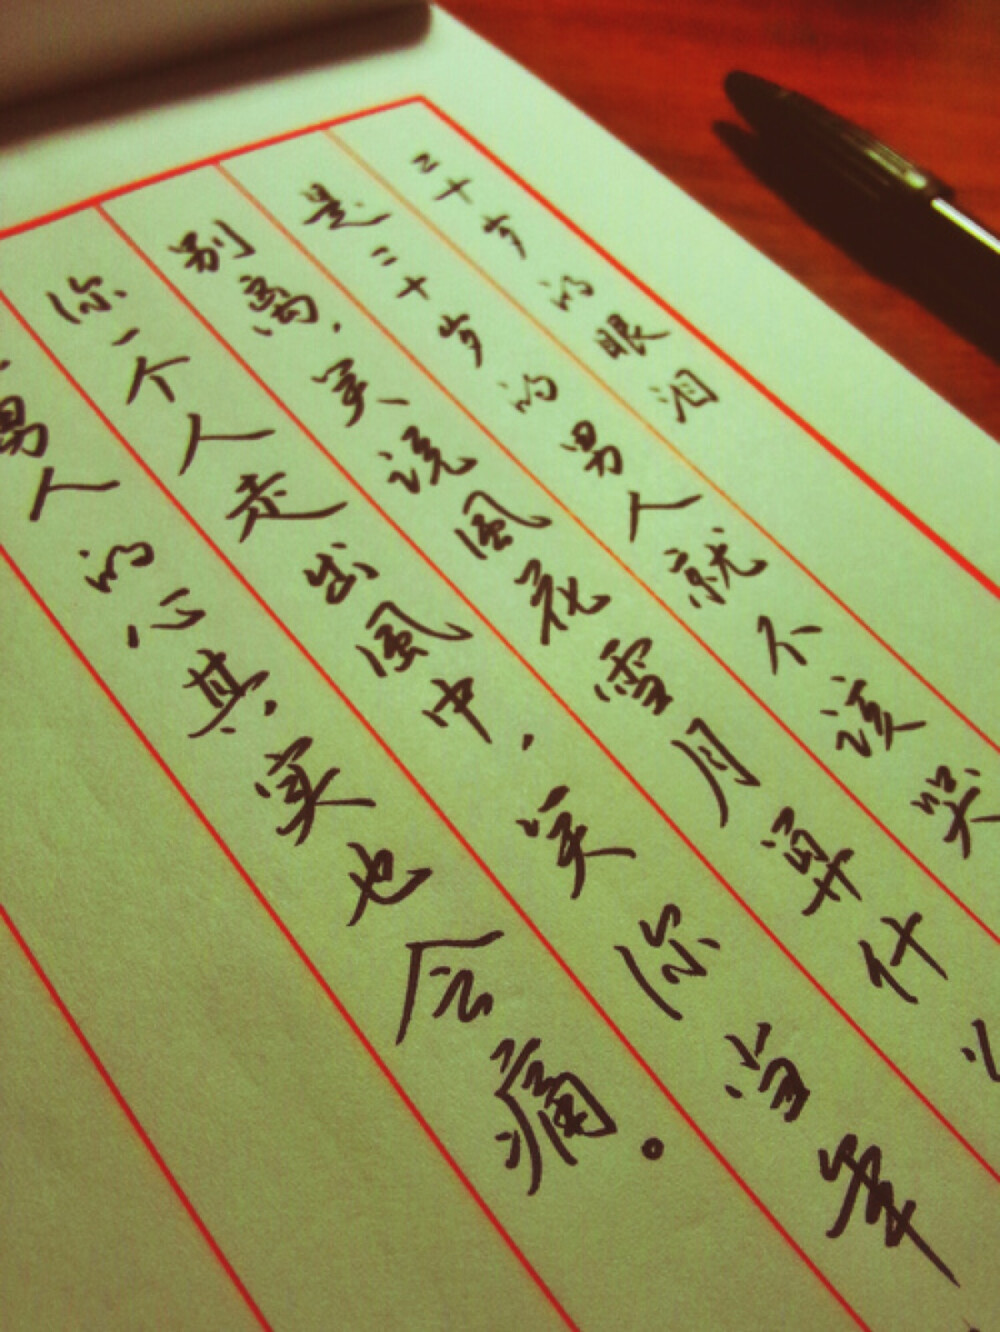 二十岁的眼泪
是二十岁的男人就不该哭
别离，笑说風花雪月算什
你一个人走出風中，笑你当年
男人的心其实也会痛。